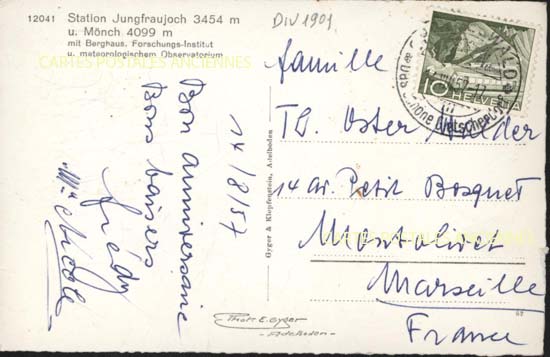 12041 Station Jungfraujoch 3454 m
u. Mönch 4099 m
mit Berghaus, Forschungs-Institut
u. meteorologischem Observatorium
CARTES POSTALES ANCIENNES
DIV 1901
14/8/57
Bon anniversaire
Bons baisers
Nicole
Gyger & Klopfenstein, Adelboden
Phot. E. Gyger
Adelboden
10 HELVETIA
famille
Th. Oster
14 av. Petit Bosquet
CARTES POSTALES ANCIENNES
Montolivet
Marseille
France